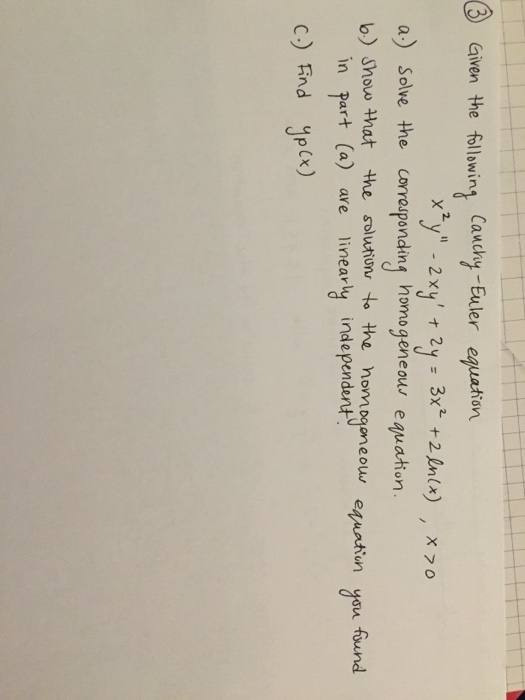 ③ Given the following Cauchy-Euler equation
x²y'' - 2xy' + 2y = 3x² + 2 ln(x) , x > 0
a.) Solve the corresponding homogeneous equation.
b.) Show that the solutions to the homogeneous equation you found
in part (a) are linearly independent.
c.) Find yp(x)